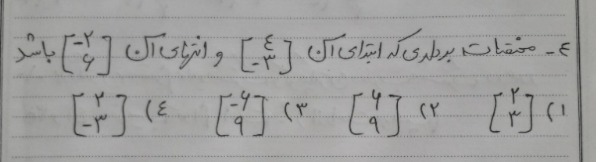 ۴- مختصات برداری که ابتدای آن [۴ -۳] و انتهای آن [-۲ ۶] باشد
۱) [۲ ۳] ۲) [۶ ۹] ۳) [-۶ ۹] ۴) [۲ -۳]